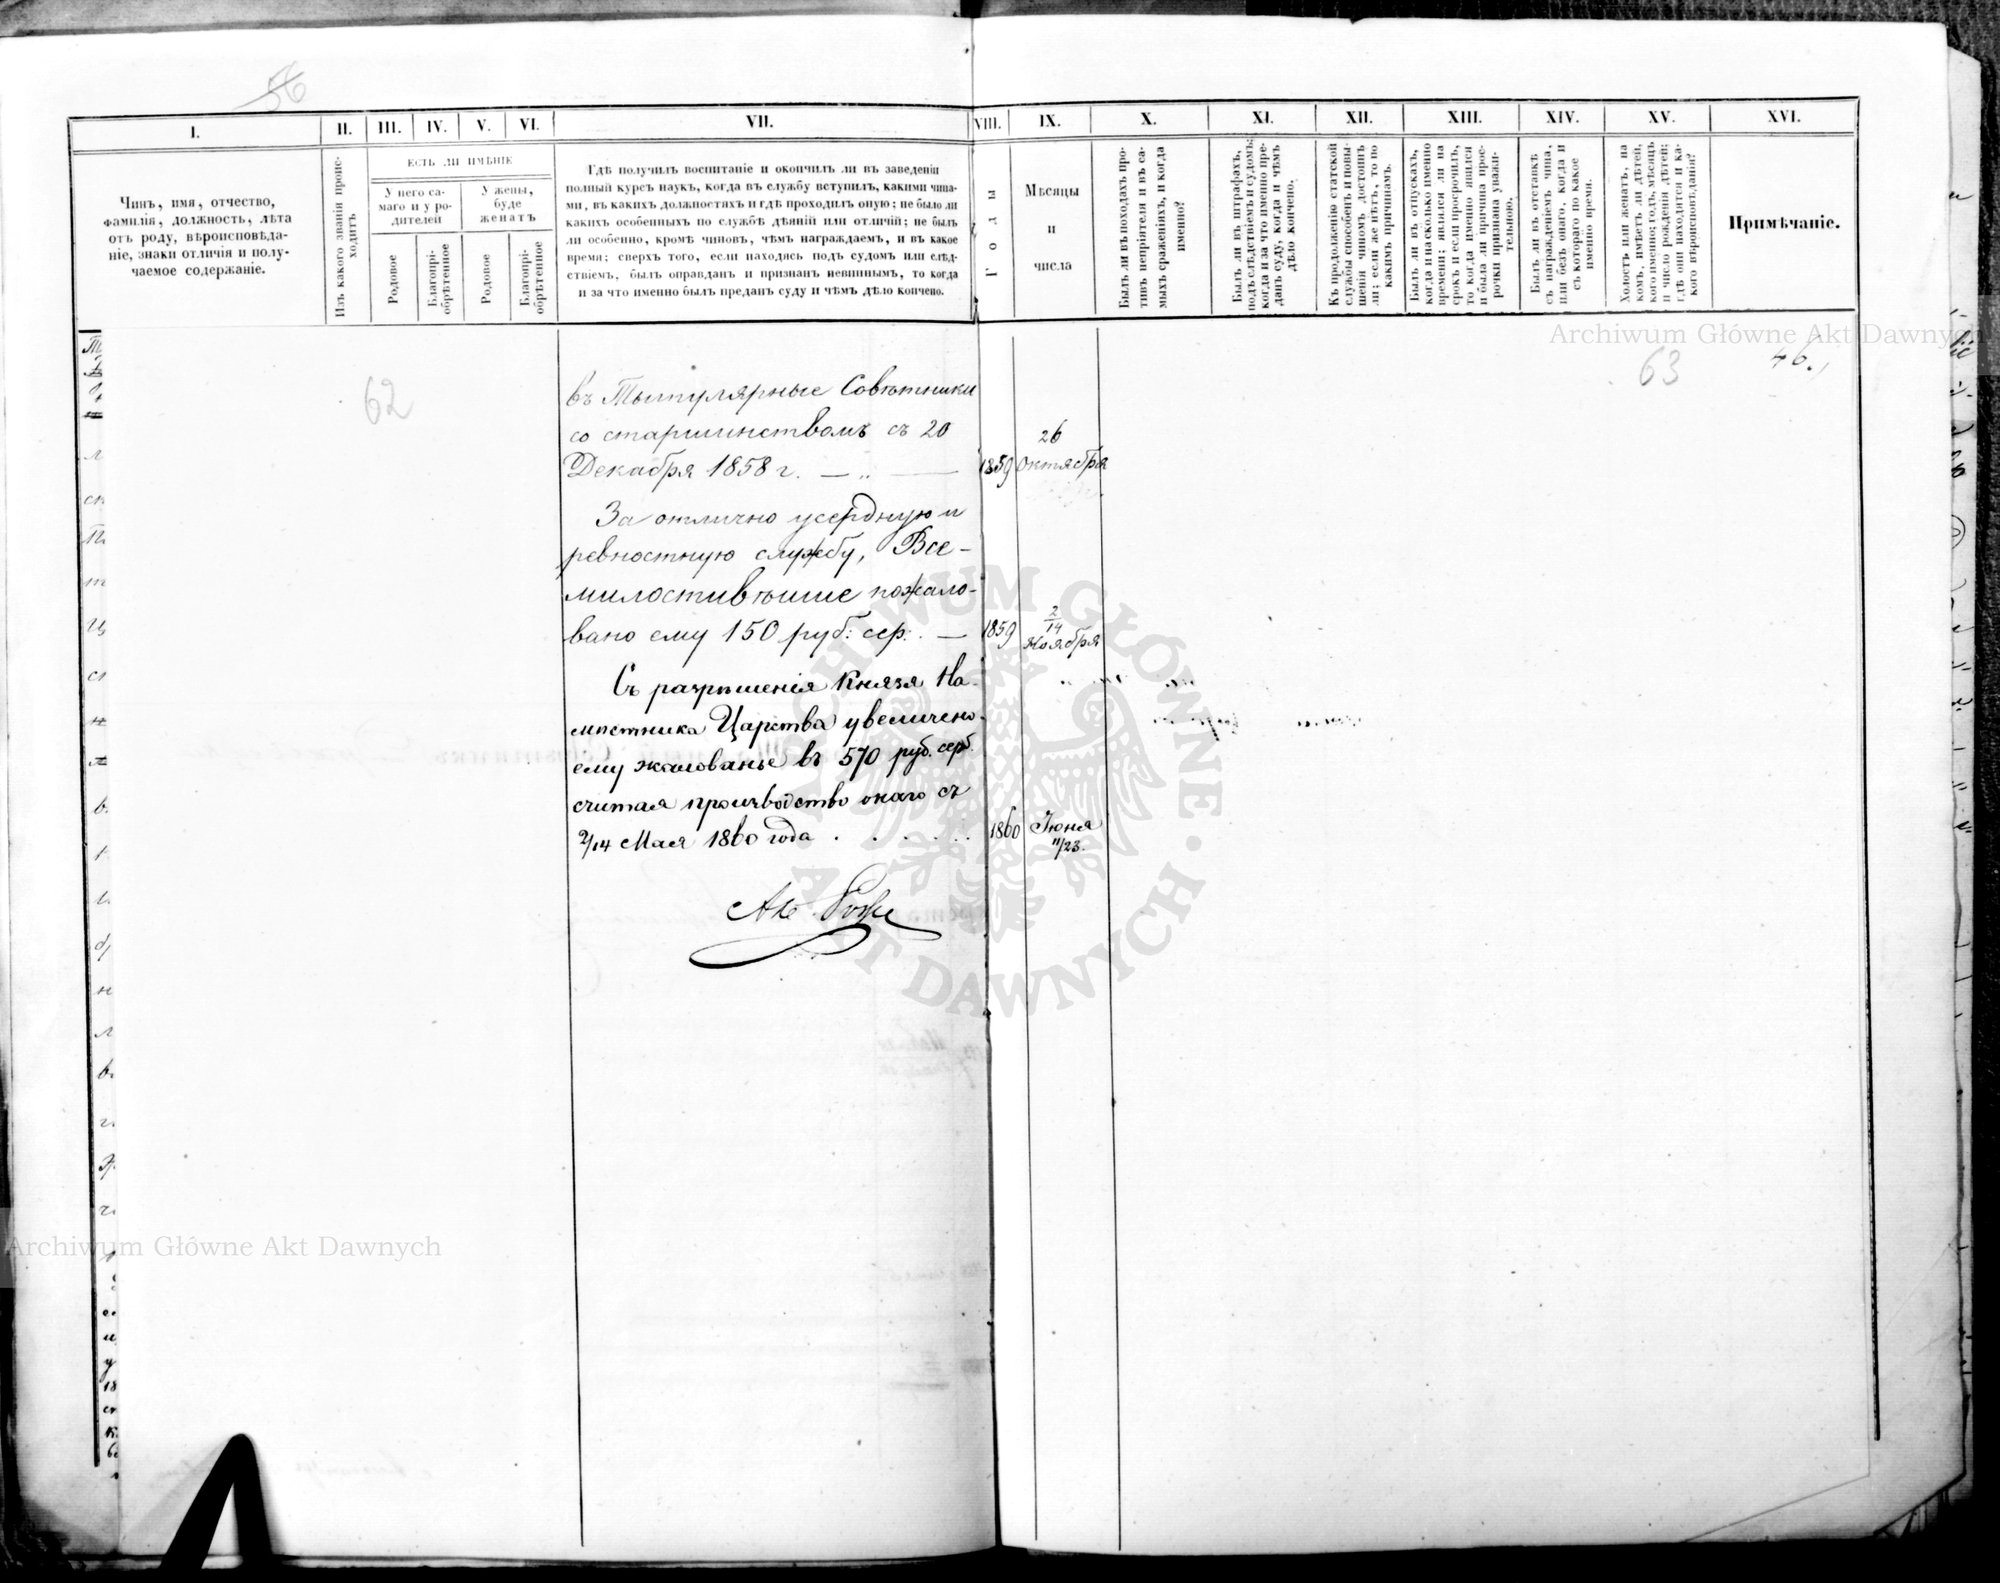 56
I.
II.
III.
IV.
V.
VI.
VII.
VIII.
IX.
X.
XI.
XII.
XIII.
XIV.
XV.
XVI.
Чинъ, имя, отчество,
фамилія, должность, лѣта
отъ роду, вѣроисповѣда-
ніе, знаки отличія и полу-
чаемое содержаніе.
Изъ какого званія проис-
ходитъ
ЕСТЬ ЛИ ИМѢНІЕ
У него са-
маго и у ро-
дителей
У жены,
буде
женатъ
Родовое
Благопрі-
обрѣтенное
Родовое
Благопрі-
обрѣтенное
Гдѣ получилъ воспитаніе и окончилъ ли въ заведеніи
полный курсъ наукъ, когда въ службу вступилъ, какими чина-
ми, въ какихъ должностяхъ и гдѣ проходилъ оную; не было ли
какихъ особенныхъ по службѣ дѣяній или отличій; не былъ
ли особенно, кромѣ чиновъ, чѣмъ награждаемъ, и въ какое
время; сверхъ того, если находясь подъ судомъ или слѣд-
ствіемъ, былъ оправданъ и признанъ невиннымъ, то когда
и за что именно былъ преданъ суду и чѣмъ дѣло кончено.
Годы
Мѣсяцы
и
числа
Былъ ли въ походахъ про-
тивъ непріятеля и въ са-
мыхъ сраженіяхъ, и когда
именно?
Былъ ли въ штрафахъ,
подъ слѣдствіемъ и судомъ;
когда и за что именно пре-
данъ суду, когда и чѣмъ
дѣло кончено.
Къ продолженію статской
службы способенъ и повы-
шенія чиномъ достоинъ
ли; если же нѣтъ, то по
какимъ причинамъ.
Былъ ли въ отпускахъ,
когда и на сколько именно
времени; явился ли на
срокъ и если просрочилъ,
то когда именно явился
и была ли причина прос-
рочки признана уважи-
тельною.
Былъ ли въ отставкѣ
съ награжденіемъ чина,
или безъ онаго, когда и
съ котораго по какое
именно время.
Холостъ или женатъ, на
комъ, имѣетъ ли дѣтей,
кого именно; годъ, мѣсяцъ
и число рожденія дѣтей;
гдѣ они находятся и ка-
кого вѣроисповѣданія?
Примѣчаніе.
Archiwum Główne Akt Dawnych
62
63
46.
въ Титулярные Совѣтники
со старшинствомъ съ 20
Декабря 1858 г. 1859 26 Октября
За отлично усердную и
ревностную службу, Все-
милостивѣйше пожало-
вано ему 150 руб: сер: 1859 2/14 Ноября
Съ разрѣшенія Князя На-
мѣстника Царства увеличено
ему жалованье въ 570 руб. сер.
считая производство онаго съ
2/14 Мая 1860 года 1860 Іюня 11/23.
ARCHIWUM GŁÓWNE AKT DAWNYCH
Archiwum Główne Akt Dawnych